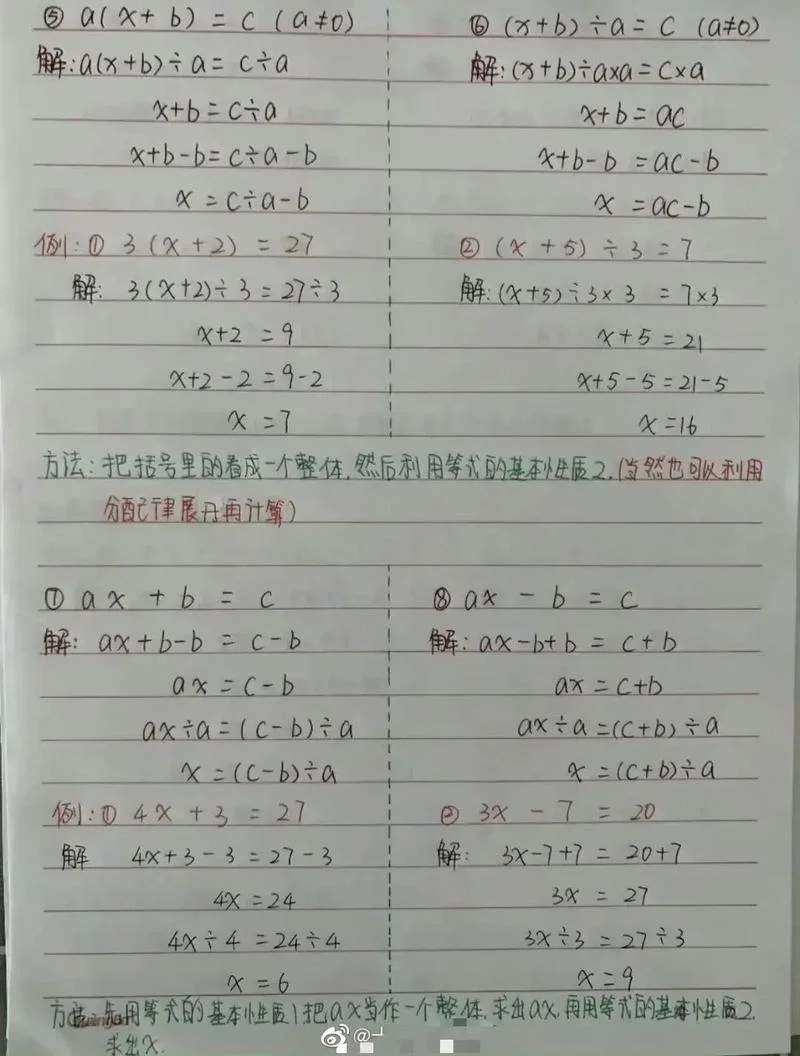 ⑤ a(x+b) = c (a≠0)
解: a(x+b)÷a = c÷a
x+b = c÷a
x+b-b = c÷a-b
x = c÷a-b
例: ① 3(x+2) = 27
解: 3(x+2)÷3 = 27÷3
x+2 = 9
x+2-2 = 9-2
x = 7
⑥ (x+b)÷a = c (a≠0)
解: (x+b)÷a×a = c×a
x+b = ac
x+b-b = ac-b
x = ac-b
② (x+5)÷3 = 7
解: (x+5)÷3×3 = 7×3
x+5 = 21
x+5-5 = 21-5
x = 16
方法: 把括号里的看成一个整体,然后利用等式的基本性质2.(当然也可以利用
分配律展开再计算)
⑦ ax + b = c
解: ax+b-b = c-b
ax = c-b
ax÷a = (c-b)÷a
x = (c-b)÷a
例: ① 4x + 3 = 27
解 4x+3-3 = 27-3
4x = 24
4x÷4 = 24÷4
x = 6
⑧ ax - b = c
解: ax-b+b = c+b
ax = c+b
ax÷a = (c+b)÷a
x = (c+b)÷a
② 3x - 7 = 20
解: 3x-7+7 = 20+7
3x = 27
3x÷3 = 27÷3
x = 9
方法: 先用等式的基本性质1把ax当作一个整体,求出ax,再用等式的基本性质2.
求出x.